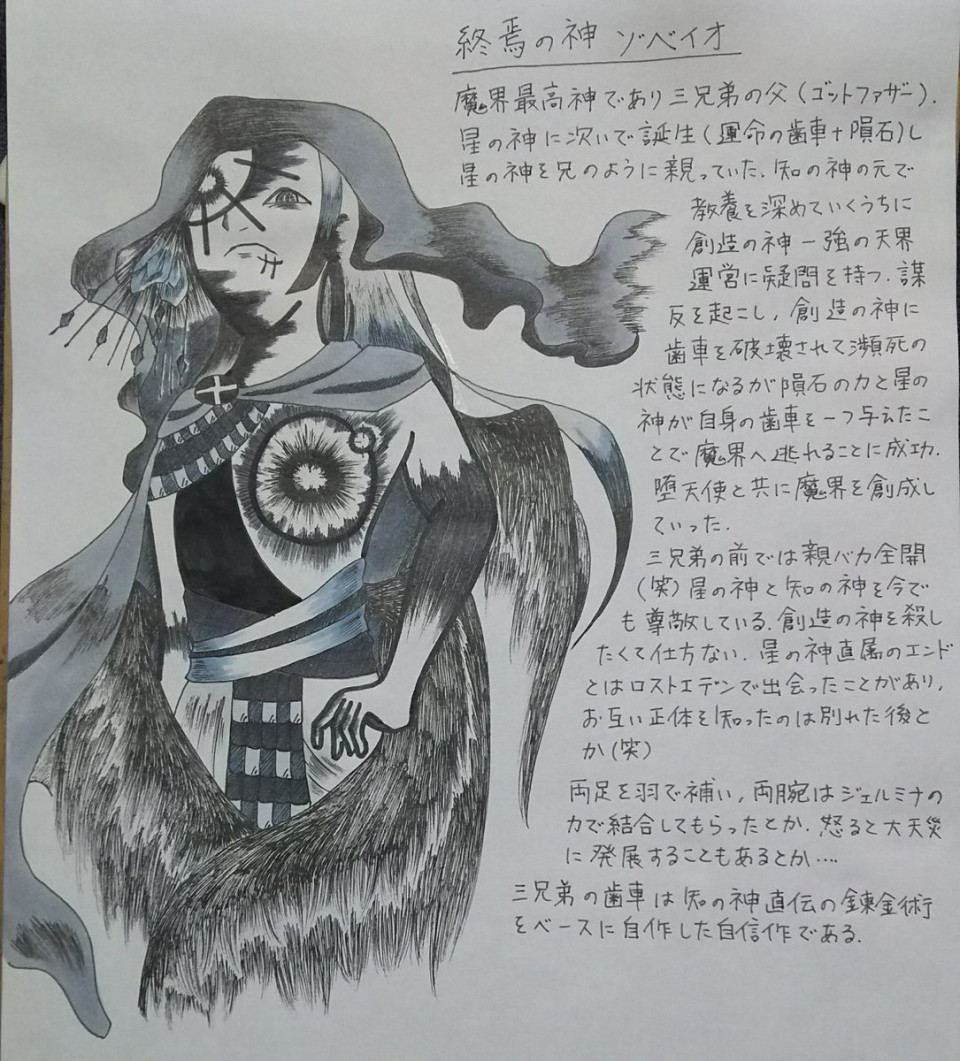 終焉の神 ゾベイオ
魔界最高神であり三兄弟の父(ゴットファザー).
星の神に次いで誕生(運命の歯車+隕石)し
星の神を兄のように親っていた. 知の神の元で
教養を深めていくうちに
創造の神一強の天界
運営に疑問を持つ. 謀
反を起こし, 創造の神に
歯車を破壊されて瀕死の
状態になるが隕石の力と星の
神が自身の歯車を一つ与えたこ
とで魔界へ逃れることに成功.
堕天使と共に魔界を創成し
ていった.
三兄弟の前では親バカ全開
(笑)星の神と知の神を今で
も尊敬している. 創造の神を殺し
たくて仕方ない. 星の神直属のエンド
とはロストエデンで出会ったことがあり,
お互い正体を知ったのは別れた後と
か(笑)
両足を羽で補い, 両腕はジェルミナの
力で結合してもらったとか. 怒ると大天災
に発展することもあるとか....
三兄弟の歯車は知の神直伝の錬金術
をベースに自作した自信作である.